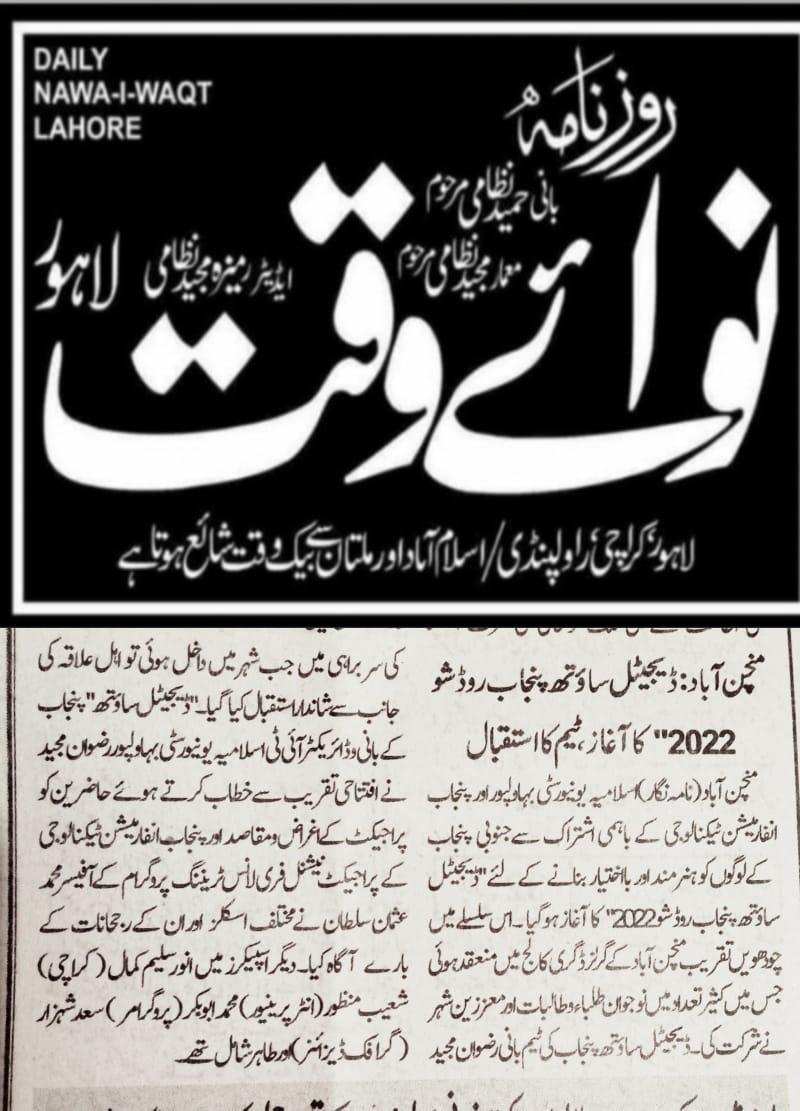 DAILY
NAWA-I-WAQT
LAHORE
روزنامہ
نوائے وقت
بانی حمید نظامی مرحوم
معمار مجید نظامی مرحوم
ایڈیٹر رمیزہ مجید نظامی
لاہور
لاہور، کراچی، راولپنڈی/اسلام آباد اور ملتان سے بیک وقت شائع ہوتا ہے
منچن آباد: ڈیجیٹل ساؤتھ پنجاب روڈ شو
2022" کا آغاز، ٹیم کا استقبال
منچن آباد (نامہ نگار) اسلامیہ یونیورسٹی بہاولپور اور پنجاب
انفارمیشن ٹیکنالوجی کے باہمی اشتراک سے جنوبی پنجاب
کے لوگوں کو ہنر مند اور بااختیار بنانے کے لئے "ڈیجیٹل
ساؤتھ پنجاب روڈ شو 2022" کا آغاز ہو گیا۔ اس سلسلے میں
چودھویں تقریب منچن آباد کے گرلز ڈگری کالج میں منعقد ہوئی
جس میں کثیر تعداد میں نوجوان طلباء و طالبات اور معززین شہر
نے شرکت کی۔ ڈیجیٹل ساؤتھ پنجاب کی ٹیم بانی رضوان مجید
کی سربراہی میں جب شہر میں داخل ہوئی تو اہل علاقہ کی
جانب سے شاندار استقبال کیا گیا۔ "ڈیجیٹل ساؤتھ" پنجاب
کے بانی و ڈائریکٹر آئی ٹی اسلامیہ یونیورسٹی بہاولپور رضوان مجید
نے افتتاحی تقریب سے خطاب کرتے ہوئے حاضرین کو
پراجیکٹ کے اغراض و مقاصد اور پنجاب انفارمیشن ٹیکنالوجی
کے پراجیکٹ نیشنل فری لانس ٹریننگ پروگرام کے آفیسر محمد
عثمان سلطان نے مختلف اسکلز اور ان کے رجحانات کے
بارے آگاہ کیا۔ دیگر اسپیکرز میں انور سلیم کمال (کراچی)
شعیب منظور (انٹرپرینیور) محمد ابوبکر (پروگرامر) سعد شہزاد
(گرافک ڈیزائنر) اور طاہر شامل تھے۔